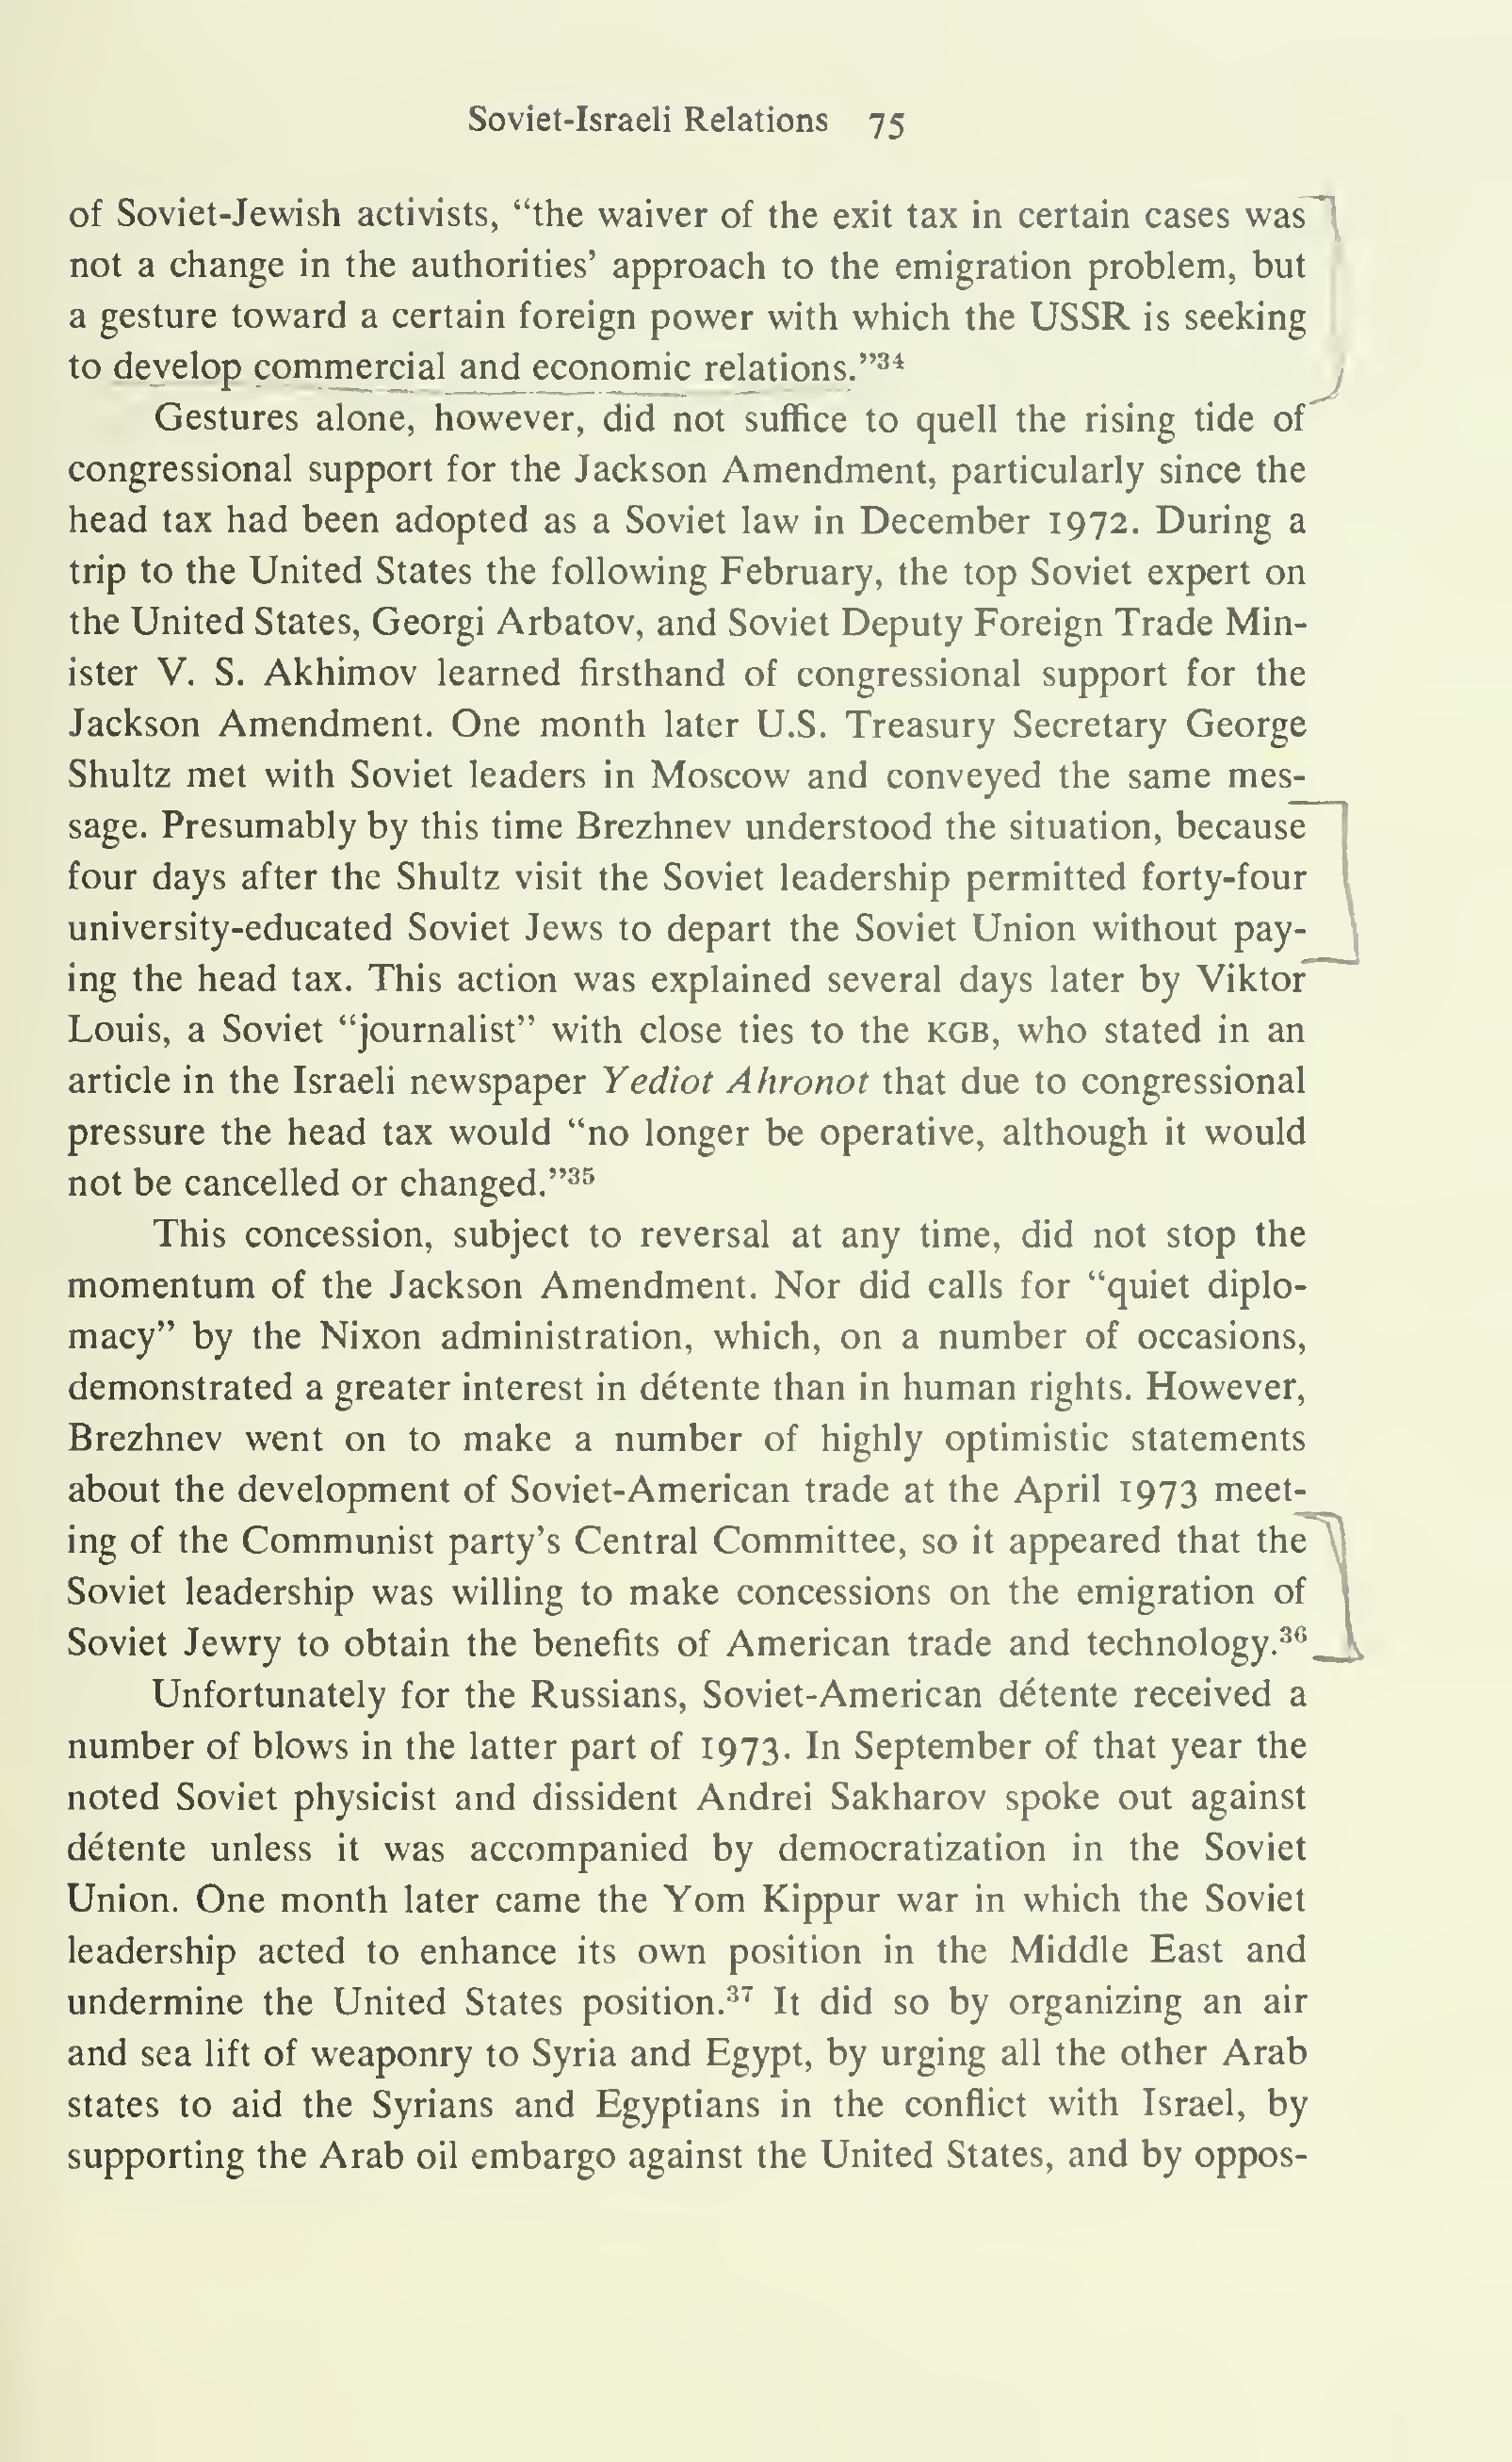 Soviet-Israeli Relations 75
of Soviet-Jewish activists, “the waiver of the exit tax in certain cases was
not a change in the authorities’ approach to the emigration problem, but
a gesture toward a certain foreign power with which the USSR is seeking
to develop commercial and economic relations.”34
Gestures alone, however, did not suffice to quell the rising tide of
congressional support for the Jackson Amendment, particularly since the
head tax had been adopted as a Soviet law in December 1972. During a
trip to the United States the following February, the top Soviet expert on
the United States, Georgi Arbatov, and Soviet Deputy Foreign Trade Min-
ister V. S. Akhimov learned firsthand of congressional support for the
Jackson Amendment. One month later U.S. Treasury Secretary George
Shultz met with Soviet leaders in Moscow and conveyed the same mes-
sage. Presumably by this time Brezhnev understood the situation, because
four days after the Shultz visit the Soviet leadership permitted forty-four
university-educated Soviet Jews to depart the Soviet Union without pay-
ing the head tax. This action was explained several days later by Viktor
Louis, a Soviet “journalist” with close ties to the KGB, who stated in an
article in the Israeli newspaper Yediot Ahronot that due to congressional
pressure the head tax would “no longer be operative, although it would
not be cancelled or changed.”35
This concession, subject to reversal at any time, did not stop the
momentum of the Jackson Amendment. Nor did calls for “quiet diplo-
macy” by the Nixon administration, which, on a number of occasions,
demonstrated a greater interest in détente than in human rights. However,
Brezhnev went on to make a number of highly optimistic statements
about the development of Soviet-American trade at the April 1973 meet-
ing of the Communist party’s Central Committee, so it appeared that the
Soviet leadership was willing to make concessions on the emigration of
Soviet Jewry to obtain the benefits of American trade and technology.36
Unfortunately for the Russians, Soviet-American détente received a
number of blows in the latter part of 1973. In September of that year the
noted Soviet physicist and dissident Andrei Sakharov spoke out against
détente unless it was accompanied by democratization in the Soviet
Union. One month later came the Yom Kippur war in which the Soviet
leadership acted to enhance its own position in the Middle East and
undermine the United States position.37 It did so by organizing an air
and sea lift of weaponry to Syria and Egypt, by urging all the other Arab
states to aid the Syrians and Egyptians in the conflict with Israel, by
supporting the Arab oil embargo against the United States, and by oppos-